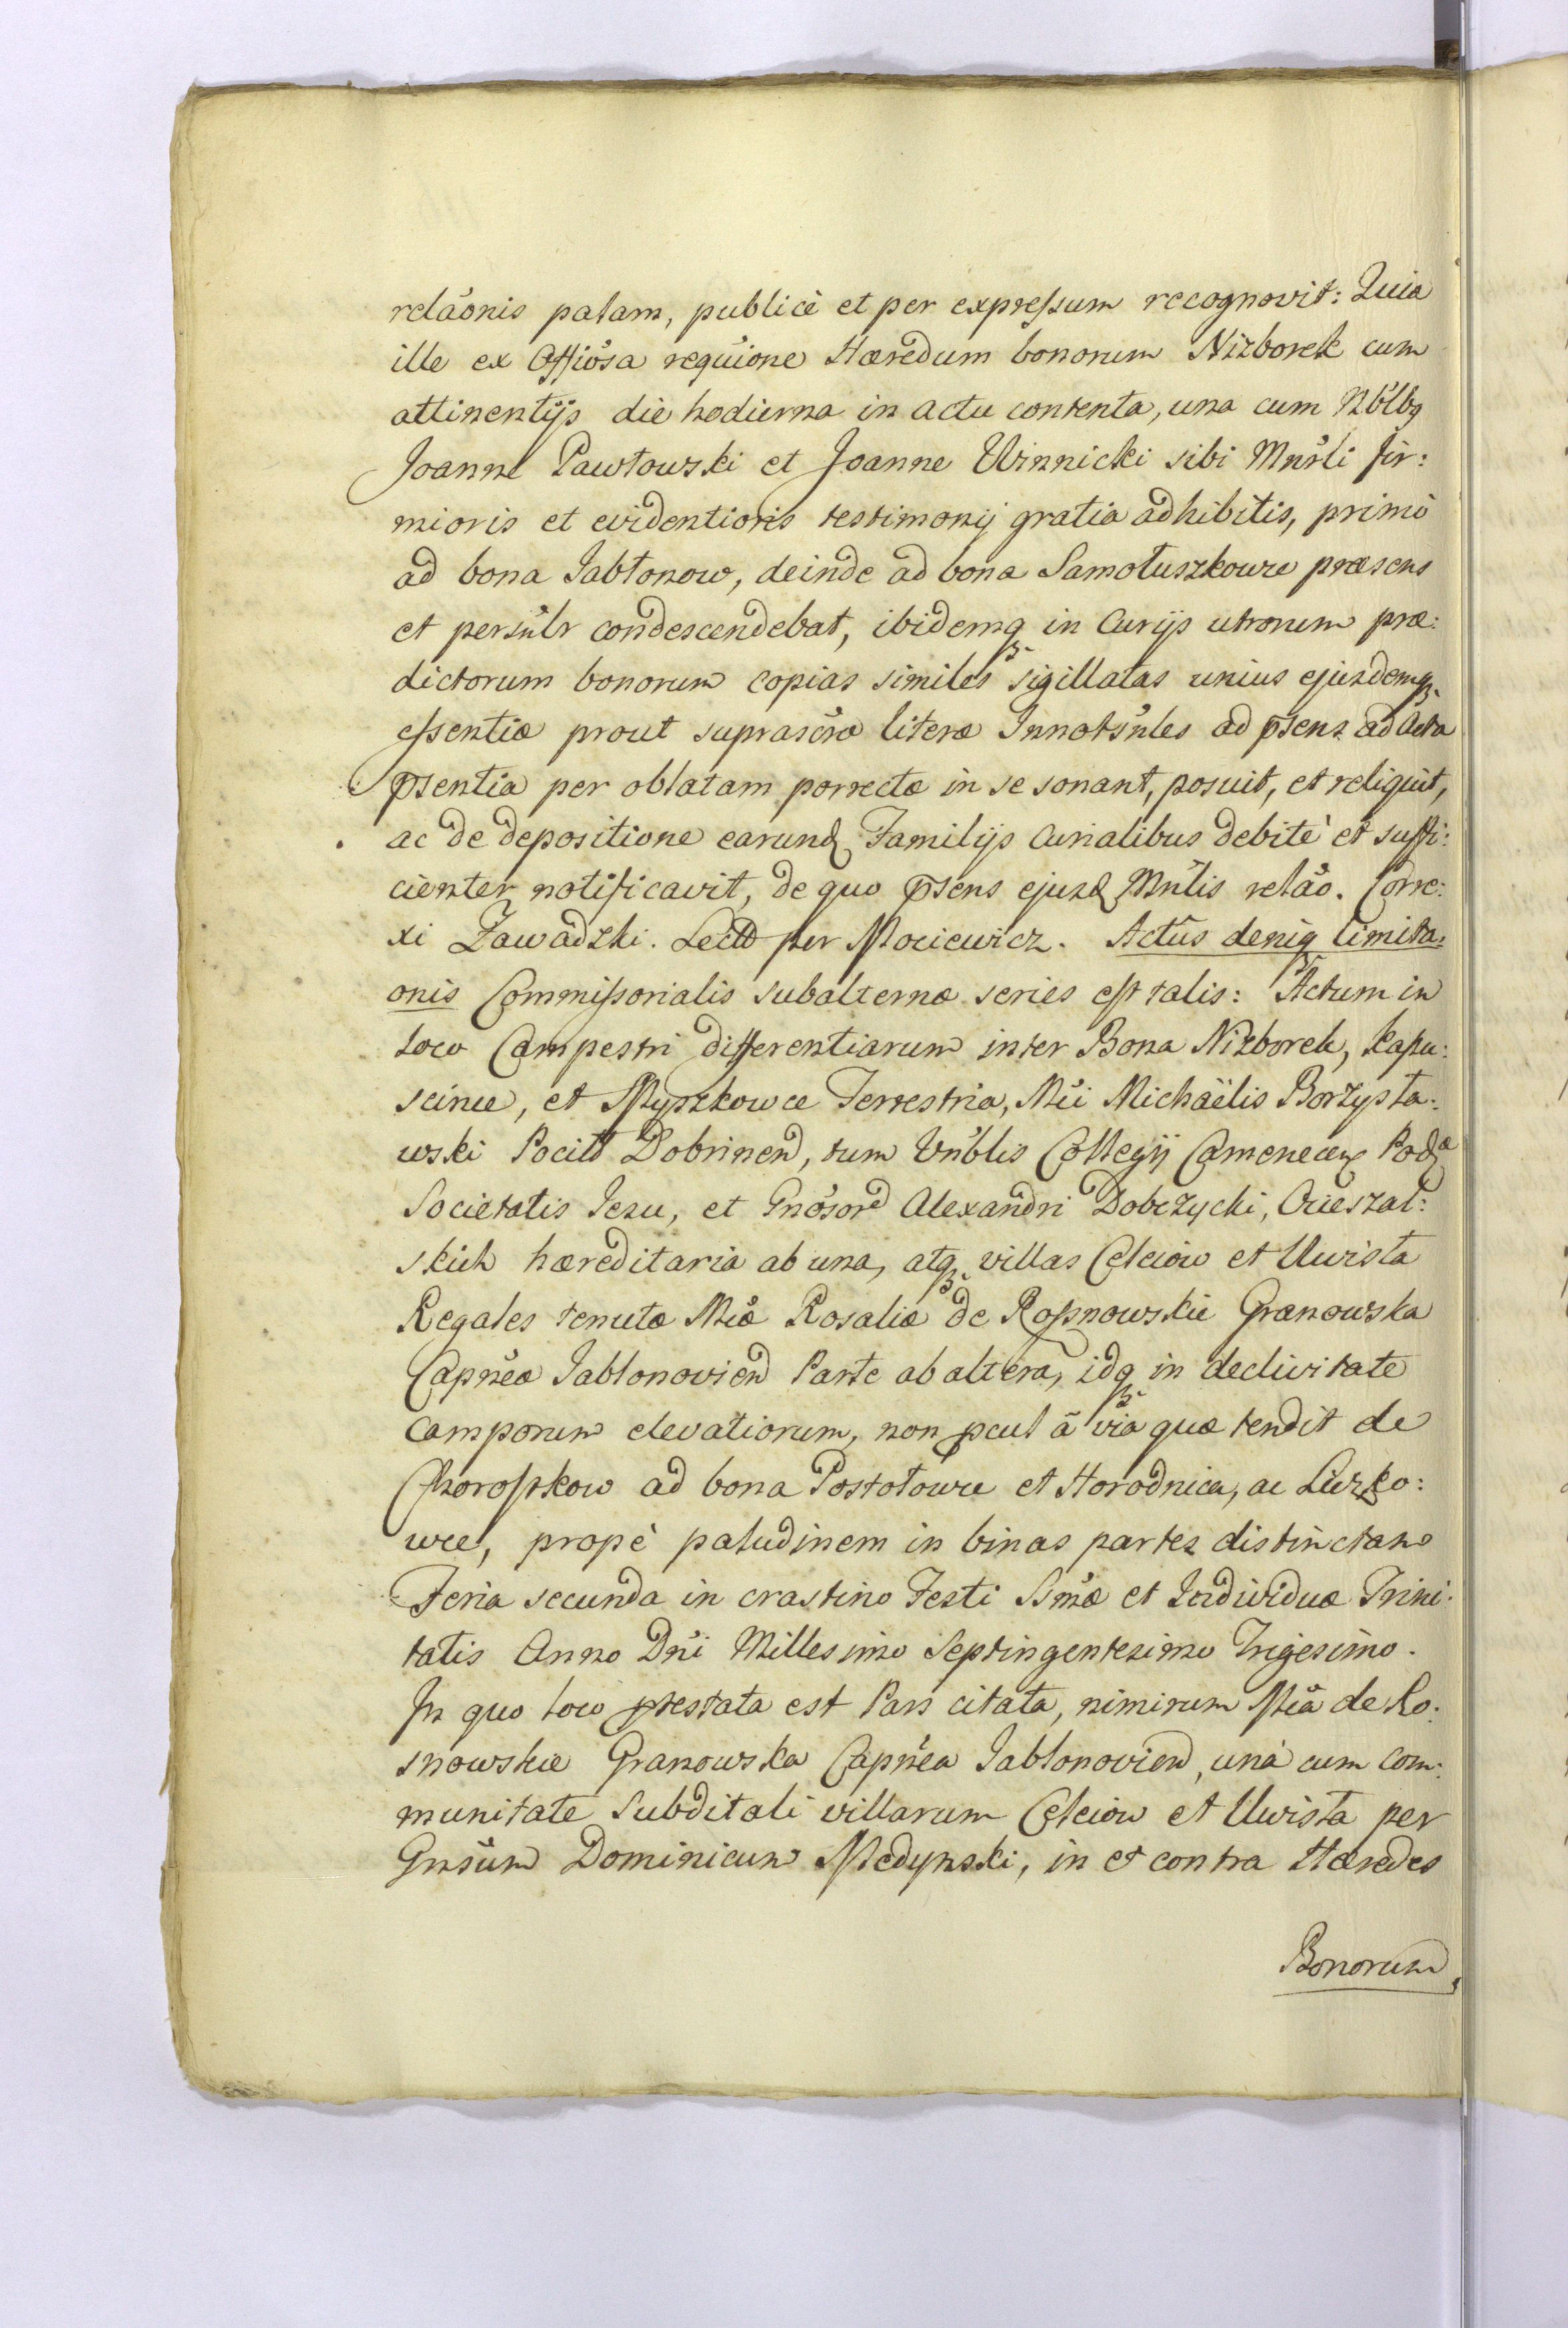 relãonis palam, publicè et per expressum recognovit: Quia
ille ex Offiõsa requiõne Hæredum bonorum Nizborek cum
attinentijs die hodierna in actu contenta, una cum Nblbq
Joanne Pawłowski et Joanne Winnicki sibi Mnrli fir:
mioris et evidentioris testimonij gratia adhibitis, primò
ad bona Jabłonow, deinde ad bona Samołuszkowce præsens
et persnlr condescendebat, ibidemq in Curijs utrorum præ:
dictorum bonorum copias similes sigillatas unius ejusdemq
essentiæ prout suprascræ literæ Innotsnles ad psens ad Acta
psentia per oblatam porrectæ in se sonant, posuit, et reliquit,
ac de depositione earund Familijs Curialibus debitè et suffi:
cienter notificavit, de quo psens ejusd Mnlis relão. Corre:
xi Zawadzki. Lectt per Mociewicz. Actus deniq limita:
onis Commissorialis subalternæ series est talis: Actum in
loco Campestri differentiarum inter Bona Nizborek, Kapu:
scince, et Myszkowce Terrestria, Mci Michaëlis Borzysła:
wski Pocill Dobrinen, tum Vnblis Collegij Camenecen Podæ
Societatis Jesu, et Gnosor Alexandri Dobrzycki, Cieszal:
skich hæreditaria ab una, atq villas Celeiow et Uwisła
Regales tenutæ Mcæ Rosaliæ de Rossnowskie Granowska
Capnea Jablonovien Parte ab altera, idq in declivitate
Camporum elevatiorum, non pcul ã via quæ tendit de
Chorostkow ad bona Postołowce et Horodnica, ac Liczko:
wce, propè paludinem in binas partes distinctam
Feria secunda in crastino Festi Ssmæ et Individuæ Trini:
tatis Anno Dni Millesimo Septingentesimo Trigesimo.
In quo loco ptestata est Pars citata, nimirum Mcã de Ro:
snowskie Granowska Capnea Jablonovien, unà cum com:
munitate Subditali villarum Celeiow et Uwisła per
Gnsum Dominicum Medynski, in et contra Hæredes
Bonorum,